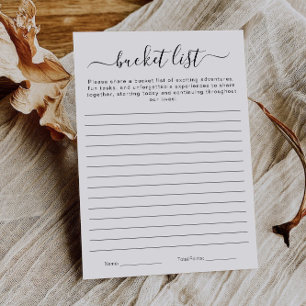 bucket list
Please share a bucket list of exciting adventures,
fun tasks, and unforgettable experiences to share
together, starting today and continuing throughout
our lives!
Name: Total Points: